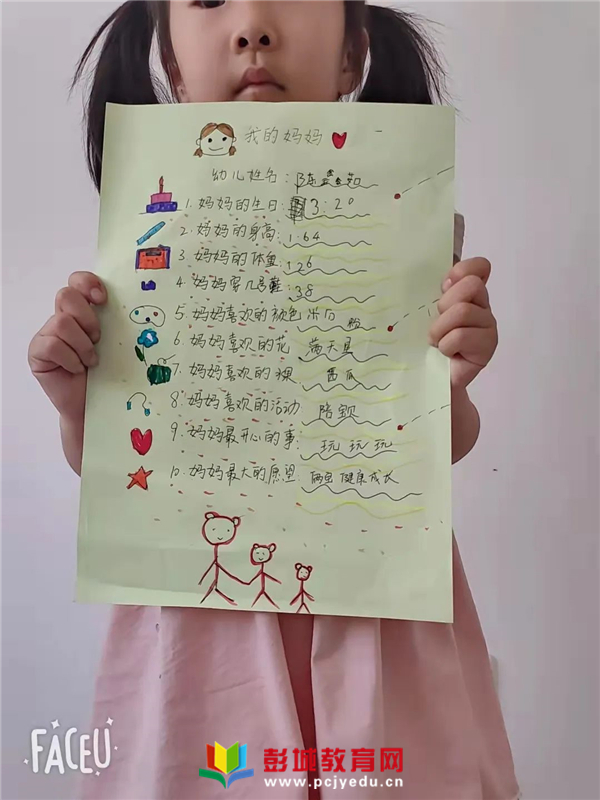 我的妈妈
幼儿姓名:陈
1.妈妈的生日:3:20
2.妈妈的身高:1.64
3.妈妈的体重:126
4.妈妈穿几号鞋:38
5.妈妈喜欢的颜色 米白 粉
6.妈妈喜欢的花 满天星
7.妈妈喜欢的水果 西瓜
8.妈妈喜欢的活动 陪宝
9.妈妈最开心的事: 玩玩玩
10.妈妈最大的愿望: 俩宝健康成长
FACEU
彭城教育网
www.pcjyedu.cn